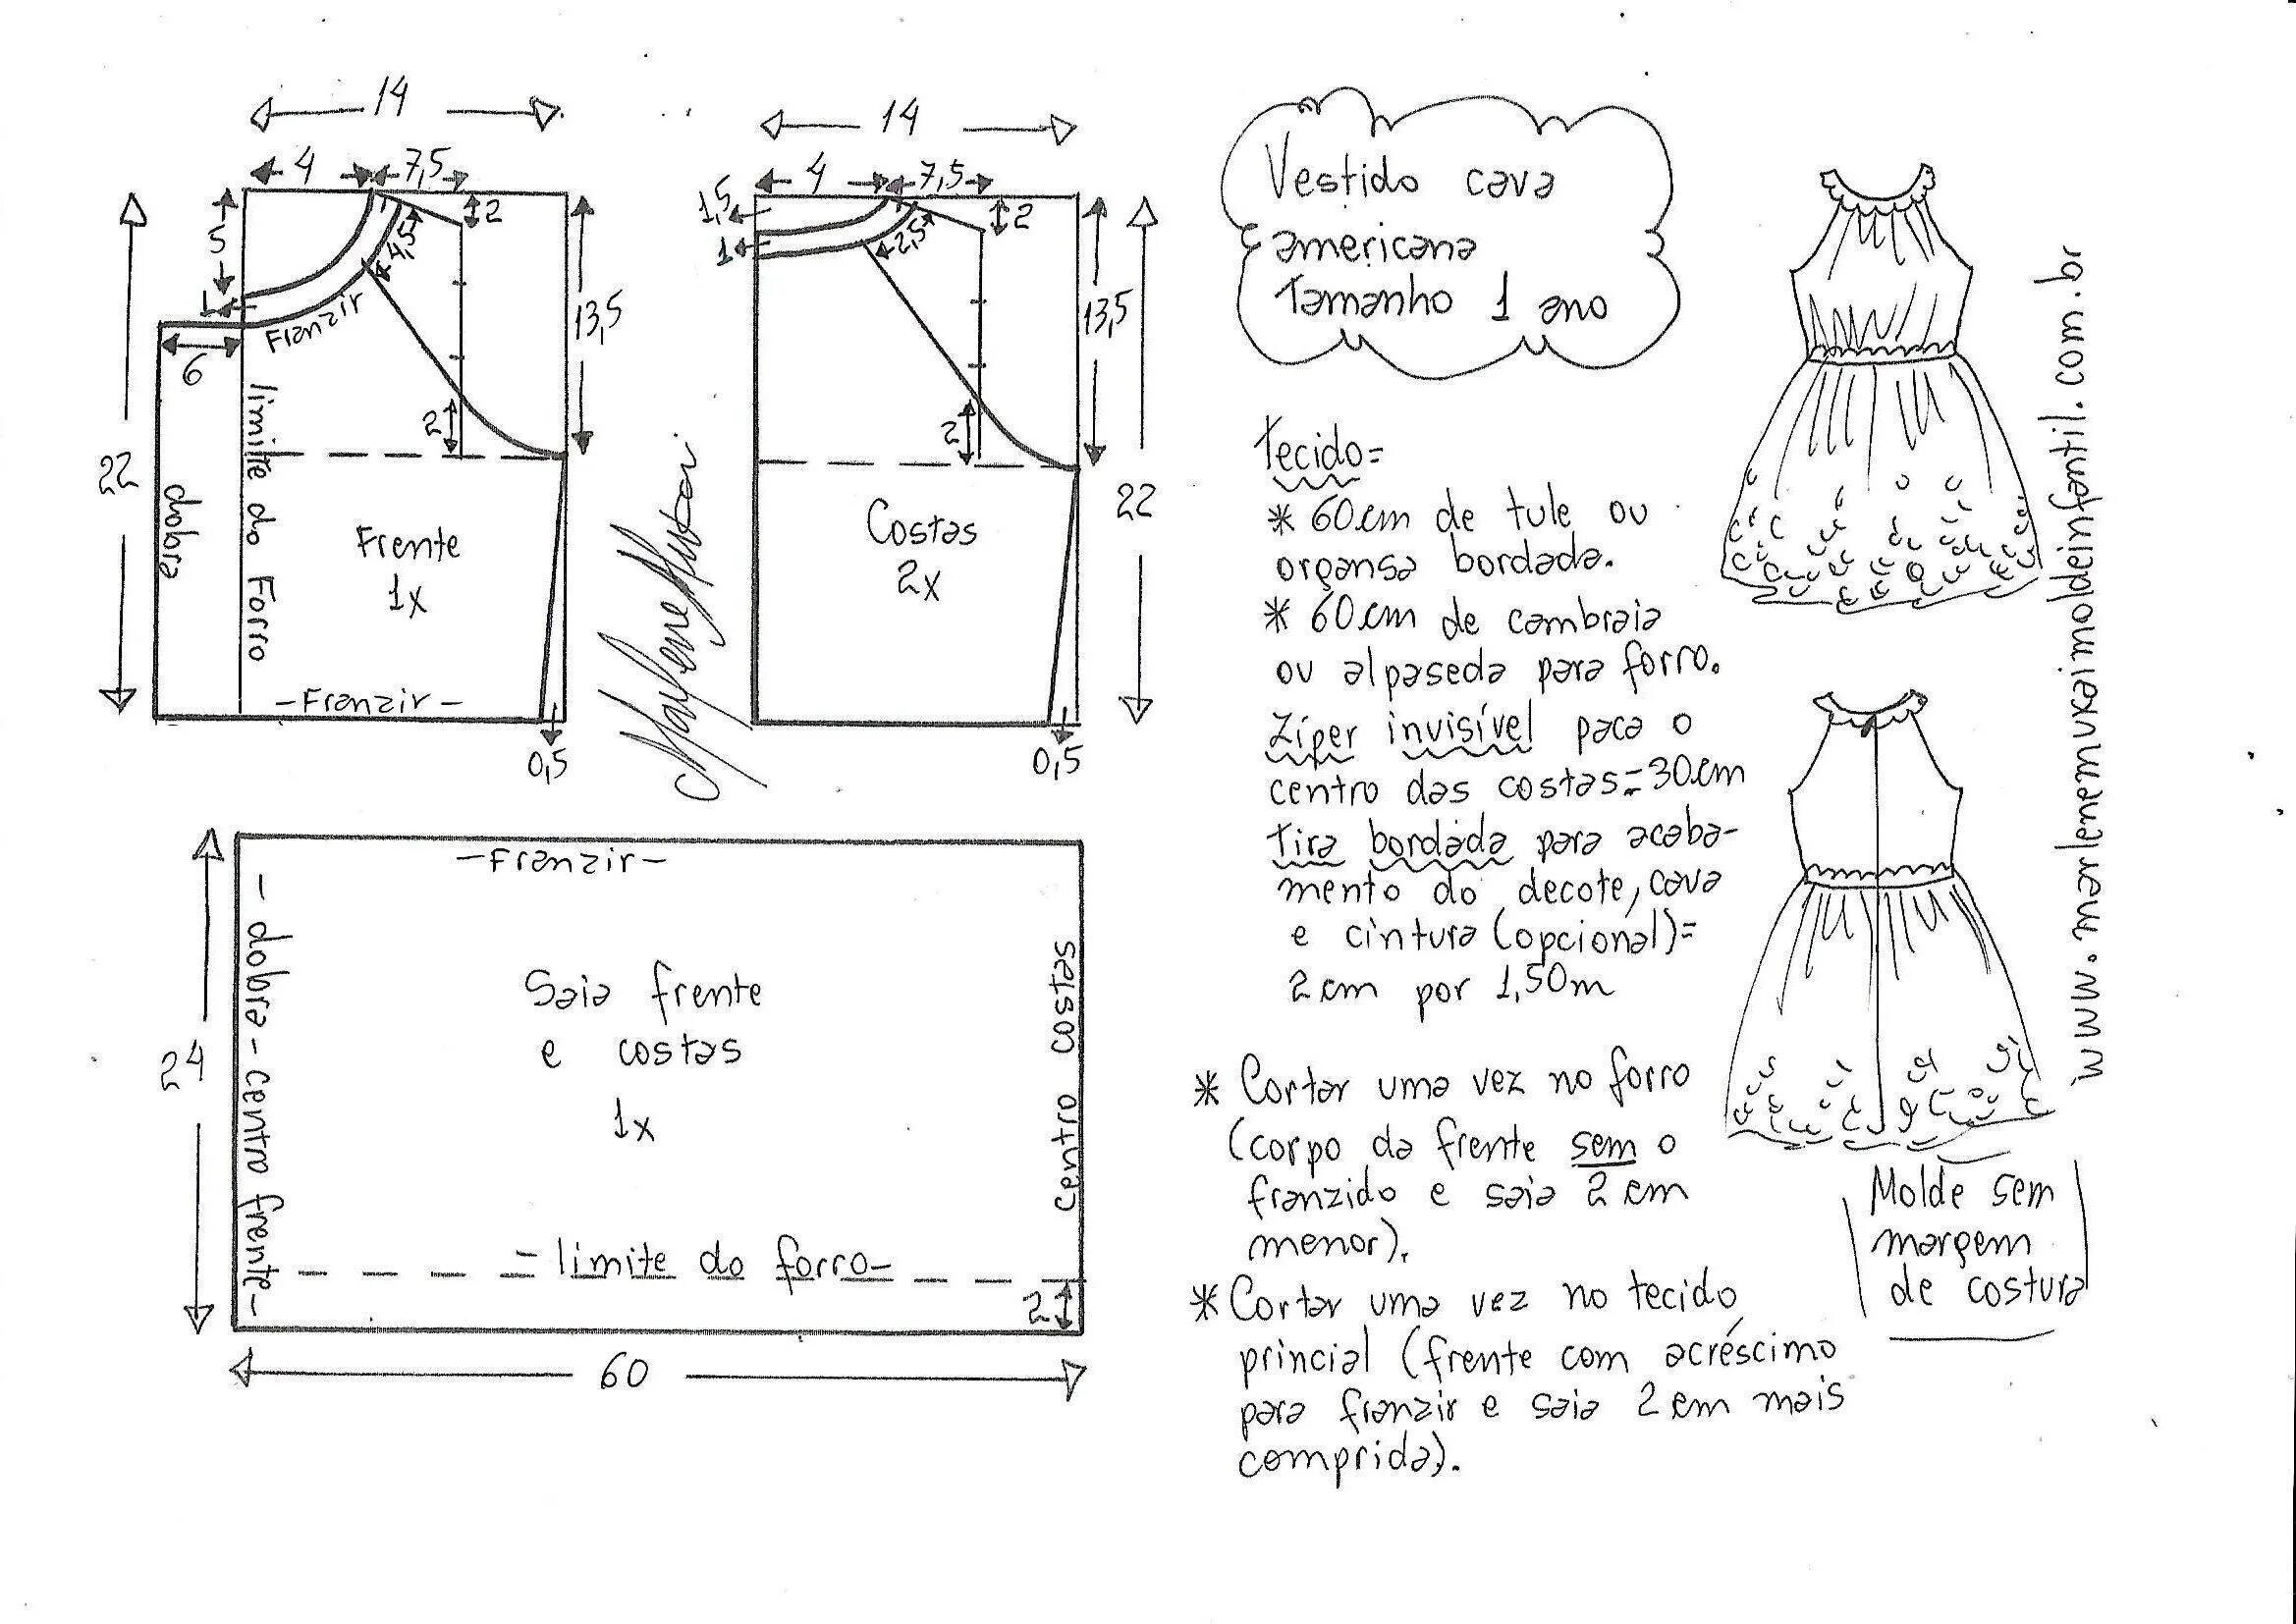 14
4
7,5
5
2
4,5
1
Franzir
13,5
6
22
2
dobra
limite do Forro
Frente
1x
-Franzir-
0,5
14
1,5
4
7,5
2
1
2,5
13,5
2
22
Costas
2x
0,5
-Franzir-
- dobra - centro frente -
24
Saia frente
e costas
1x
centro costas
= limite do forro-
2
60
Vestido cava
americana
Tamanho 1 ano
Tecido=
* 60cm de tule ou
organsa bordada.
* 60cm de cambraia
ou alpaseda para forro.
Zíper invisível para o
centro das costas=30cm
Tira bordada para acaba-
mento do decote, cava
e cintura (opcional)=
2cm por 1,50m
* Cortar uma vez no forro
(corpo da frente sem o
franzido e saia 2cm
menor).
* Cortar uma vez no tecido
princial (frente com acréscimo
para franzir e saia 2cm mais
comprida).
www.marlenemukaimoldeinfantil.com.br
Molde sem
margem
de costura